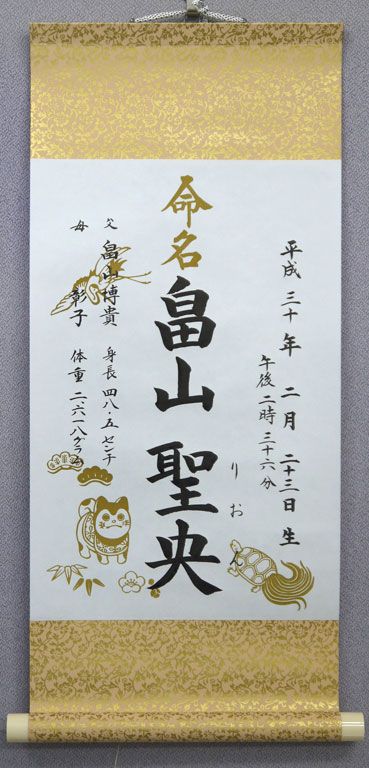 平成三十年二月二十三日生
午後二時三十六分
命名
畠山聖央
りおん
父 畠山博貴 身長 四八・五センチ
母 彰子 体重 二、六一八グラム